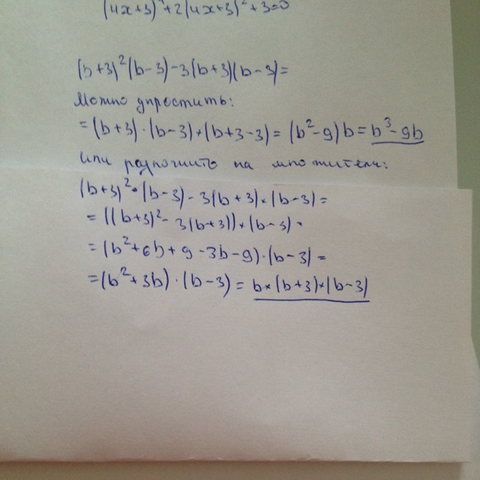 (4x+3)⁴+2(4x+3)²+3=0
(b+3)²(b-3)-3(b+3)(b-3)=
Можно упростить:
=(b+3)·(b-3)×(b+3-3)=(b²-9)b=b³-9b
Или разложить на множители:
(b+3)²×(b-3)-3(b+3)×(b-3)=
=((b+3)²-3(b+3))×(b-3)=
=(b²+6b+9-3b-9)·(b-3)=
=(b²+3b)·(b-3)=b×(b+3)×(b-3)